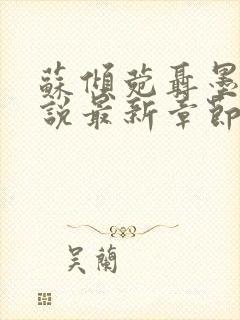 蘇傾菀聶墨
說最新章節
吴蘭